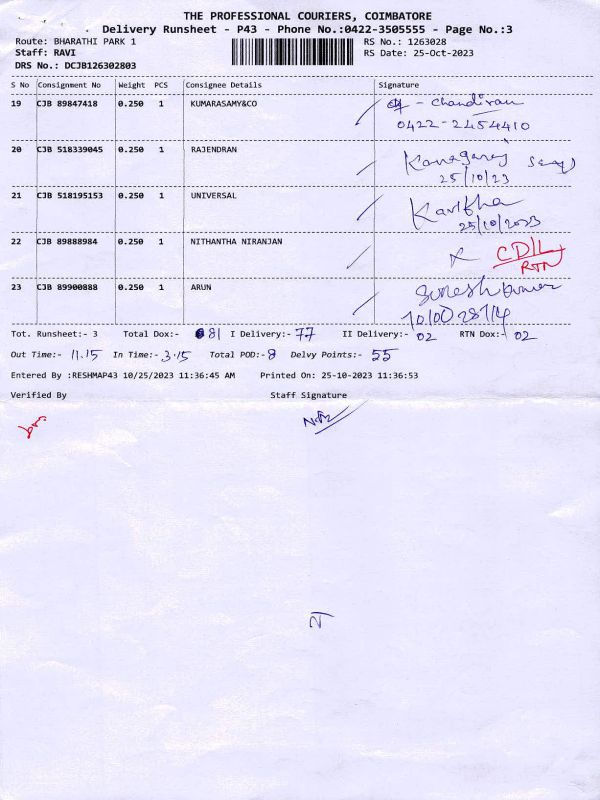 THE PROFESSIONAL COURIERS, COIMBATORE
Delivery Runsheet - P43 - Phone No.:0422-3505555 - Page No.:3
Route: BHARATHI PARK 1 RS No.: 1263028
Staff: RAVI RS Date: 25-Oct-2023
DRS No.: DCJB126302803
S No Consignment No Weight PCS Consignee Details Signature
19 CJB 89847418 0.250 1 KUMARASAMY&CO Chandiran
0422-2454410
20 CJB 518339045 0.250 1 RAJENDRAN Kanagaraj
25/10/23
21 CJB 518195153 0.250 1 UNIVERSAL Kavitha
25/10/2023
22 CJB 89888984 0.250 1 NITHANTHA NIRANJAN CD/L
RTN
23 CJB 89900888 0.250 1 ARUN Sureshkumar
Tot. Runsheet:- 3 Total Dox:- 81 I Delivery:- 77 II Delivery:- 02 RTN Dox:- 02
Out Time:- 11.15 In Time:- 3.15 Total POD:- 8 Delvy Points:- 55
Entered By :RESHMAP43 10/25/2023 11:36:45 AM Printed On: 25-10-2023 11:36:53
Verified By Staff Signature